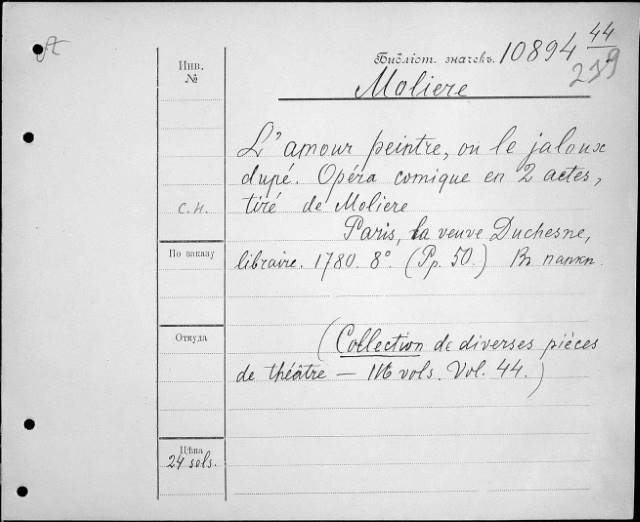 Библіот. значекъ. 10894 44
239
Инв.
№
Moliere
L'amour peintre, ou le jaloux
dupé. Opéra comique en 2 actes,
С.Н.
tiré de Moliere
Paris, la veuve Duchesne,
По заказу
libraire. 1780. 8°. (Pp. 50.) Въ папкѣ.
Откуда
(Collection de diverses pièces
de théâtre — 116 vols. Vol. 44.)
Цѣна
24 sols.